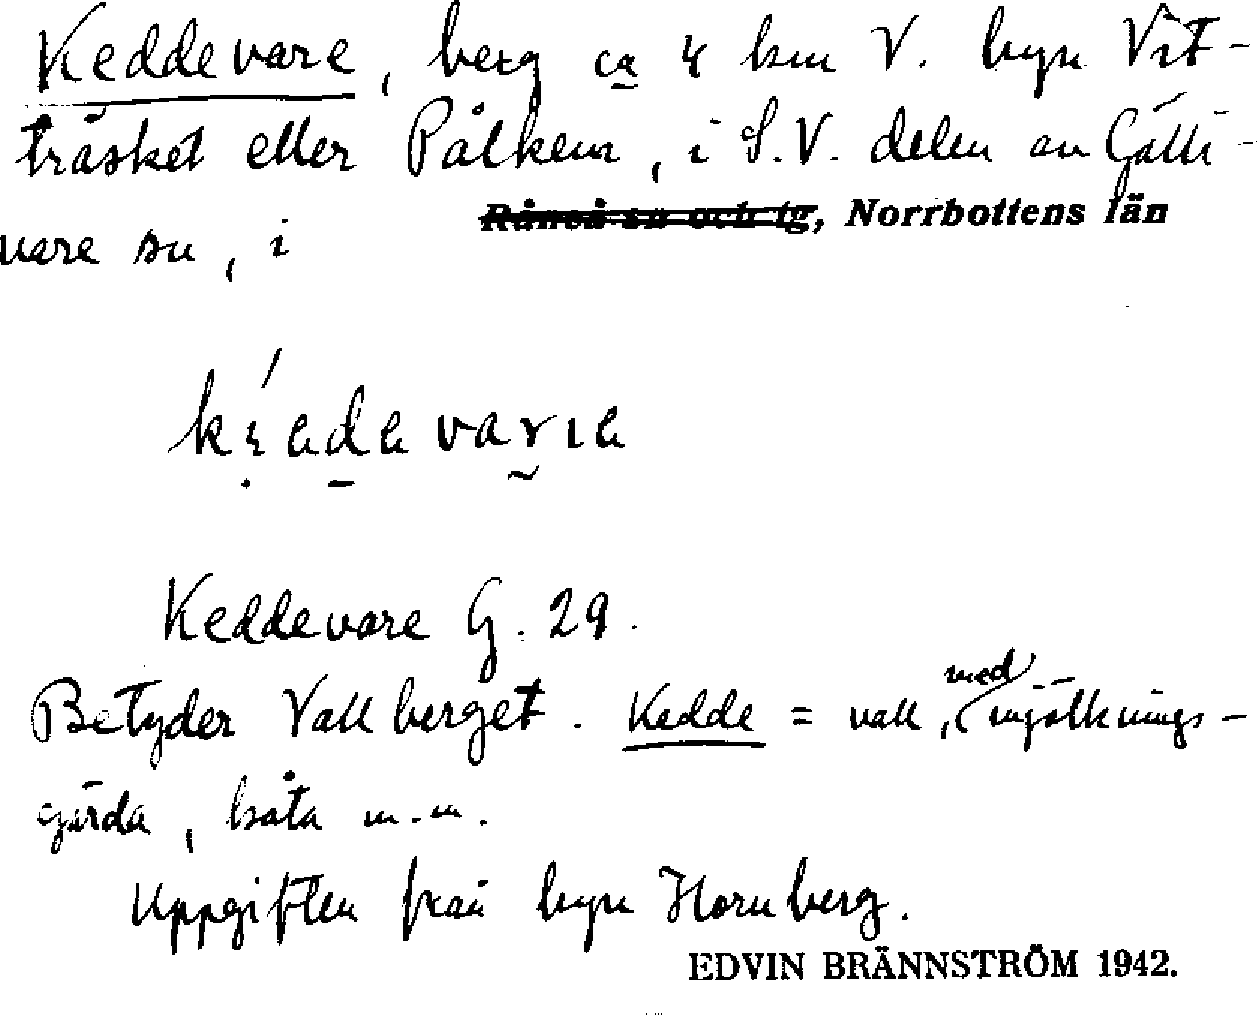 Keddevare, berg ca 4 km V. byn Vit-
träsket eller Pålkem, i S.V. delen av Gälli-
vare sn, i Råneå sn och tg, Norrbottens län
Keddevare G. 29.
Betyder Vallberget. Kedde = vall, med mjölknings-
gärda, kåta m.m.
Uppgiften från byn Hornberg.
EDVIN BRÄNNSTRÖM 1942.